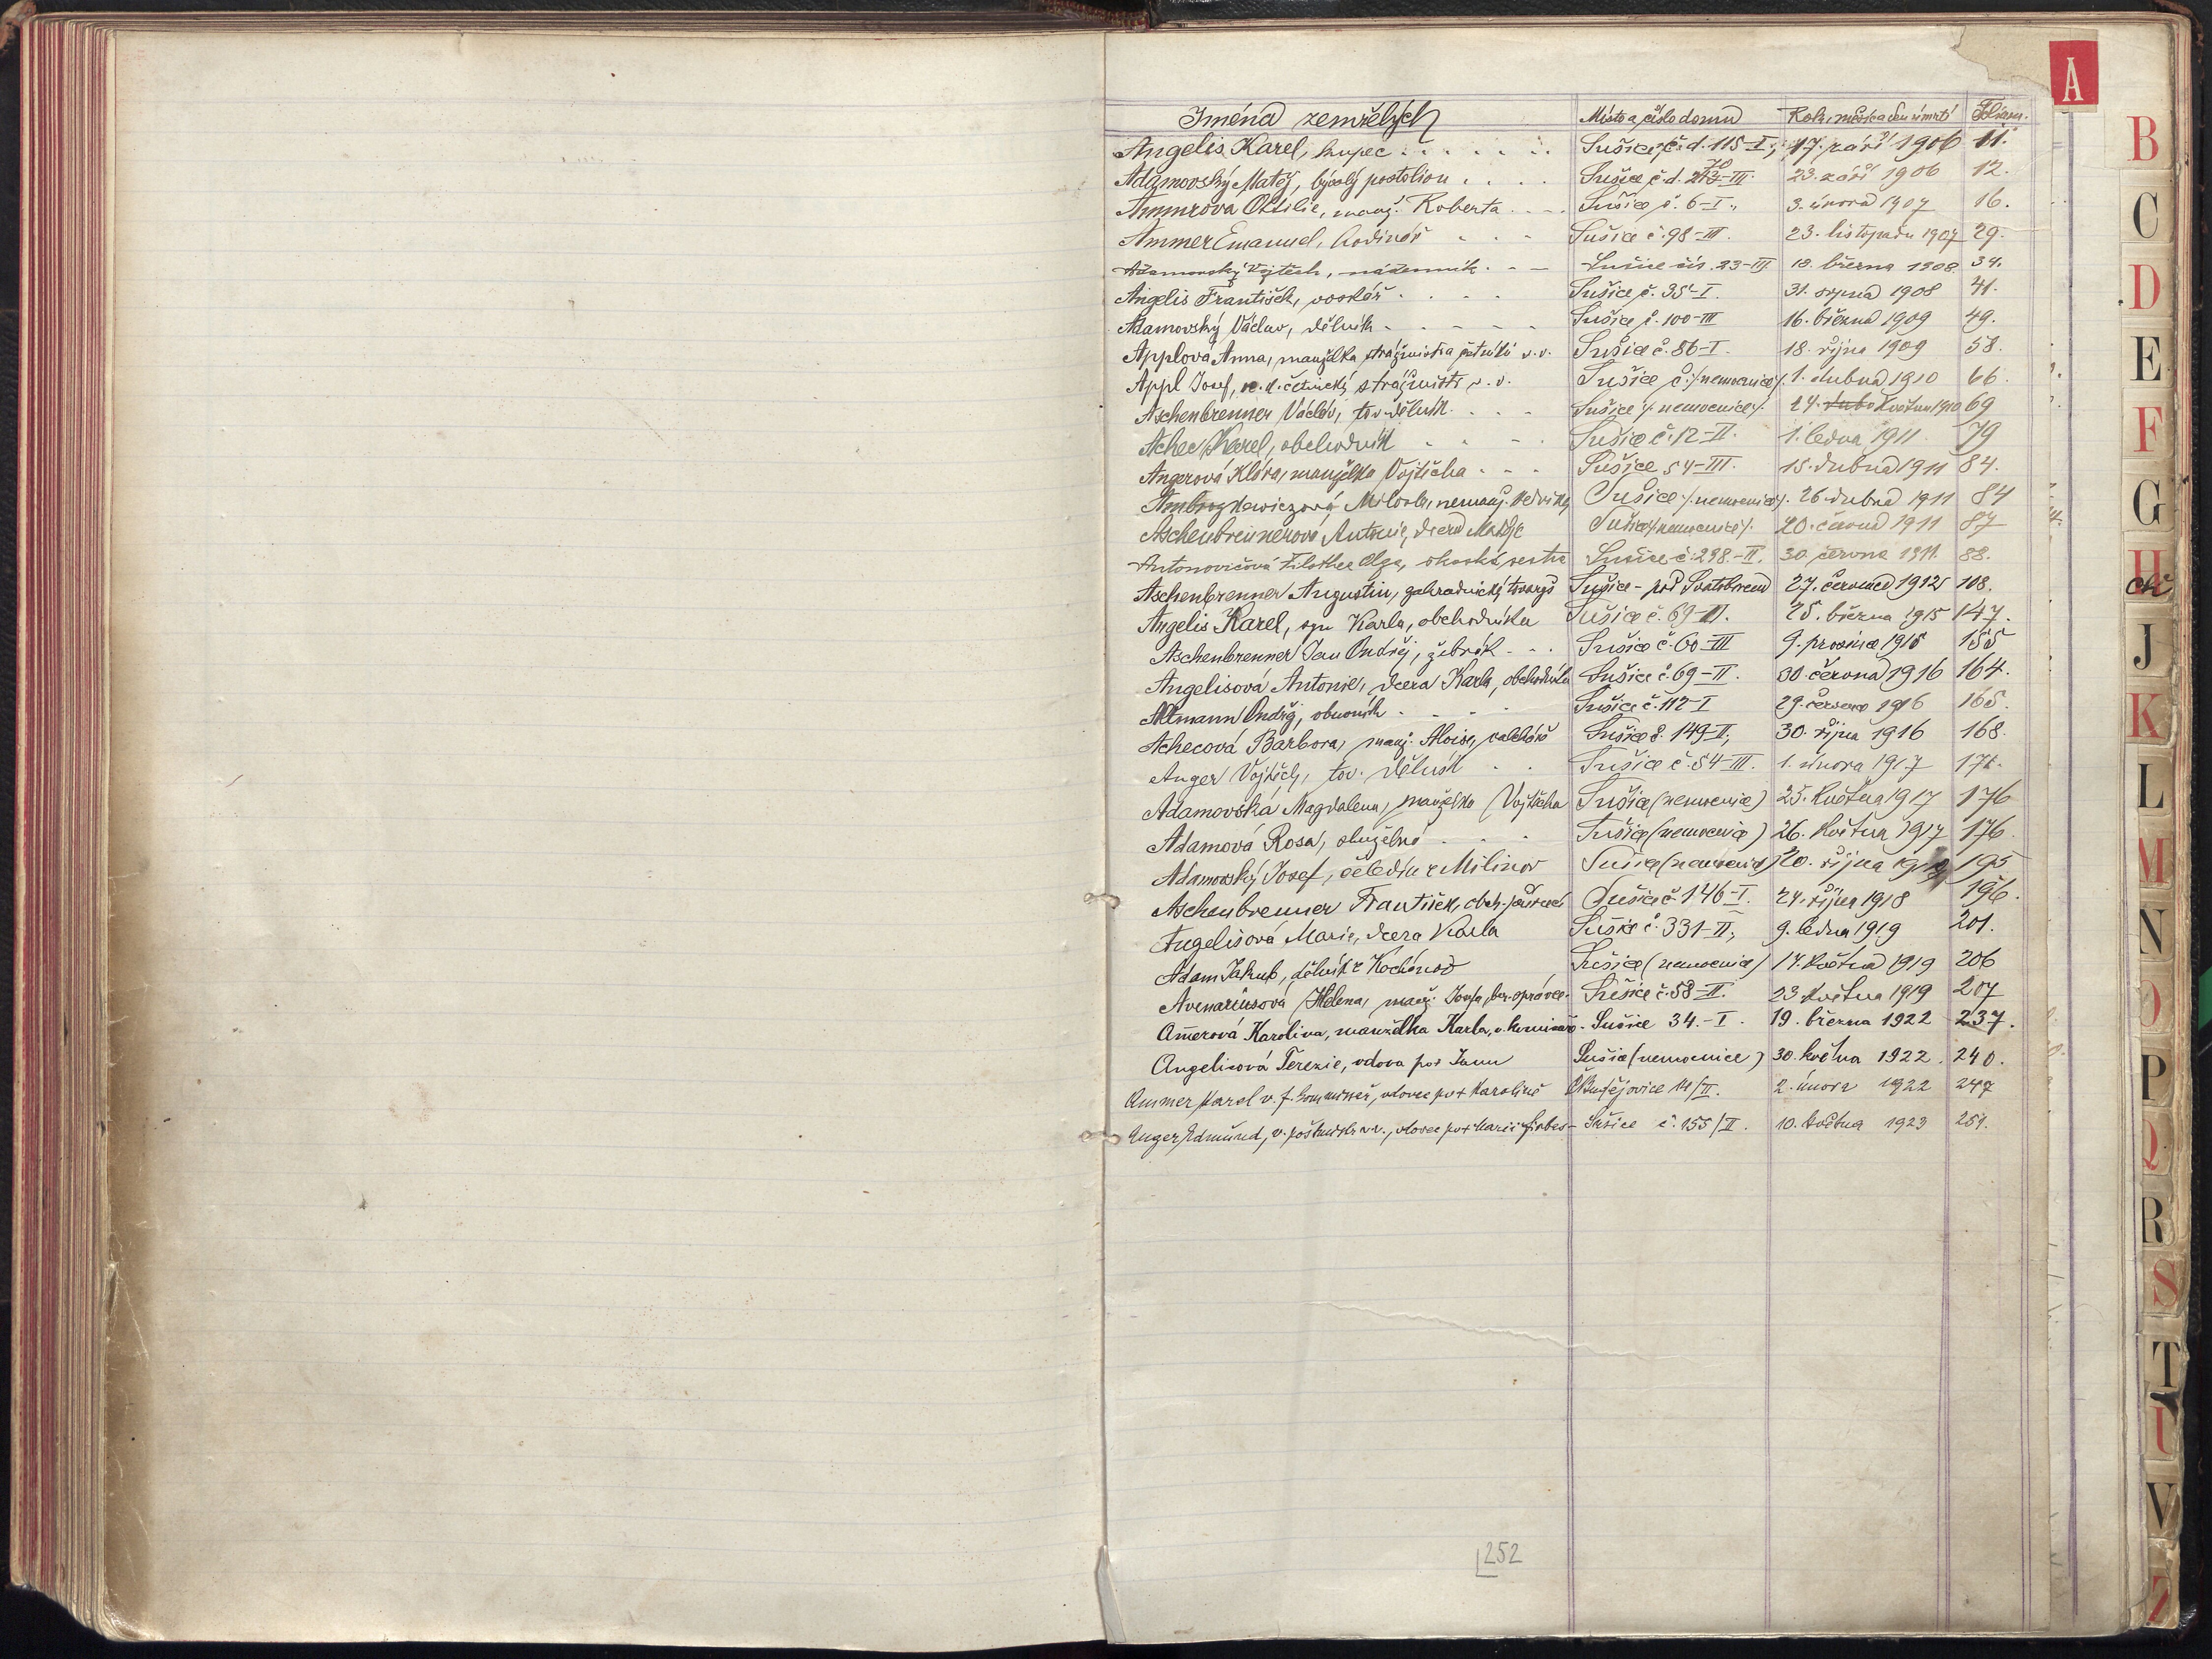 A
Jména zemřelých Místo a číslo domu Rok, měsíc a den úmrtí Folium.
Angelis Karel, kupec Sušice č. d. 115-I, 17. září 1906 11.
Adamovský Matěj, bývalý postilion Sušice č. d. 23. září 1906 12.
Ammrova Ottilie, manž. Roberta Sušice č. 6-I., 3. února 1907 16.
Ammer Emanuel, hodinář Sušice č. 98-III. 23. listopadu 1907 29.
Adamovský Vojtěch, nádenník Sušice čís. 23-III 18. března 1908 34.
Angelis František, voskář Sušice č. 35-I. 31. srpna 1908 41.
Adamovský Václav, dělník Sušice č. 100-III 16. března 1909 49.
Applová Anna, manželka strážmistra četnictva v. v. Sušice č. 86-I. 18. října 1909 58.
Appl Josef, četnický strážmistr v. v. Sušice č. /nemocnice/. 1. dubna 1910 66.
Aschenbrenner Václav, tov. dělník Sušice /. nemocnice/. 24. dub. května 1910 69
Achec Karel, obchodník Sušice č. 12-II. 1. ledna 1911 79
Angerová Klára, manželka Vojtěcha Sušice 54-III. 15. dubna 1911 84.
Miloslav, nemanž. Hedviky Sušice /. nemocnice/. 26. dubna 1911 84
Aschenbrennerová Antonie, dcera Matěje Sušice /nemocnice/. 20. června 1911 87
Antonovičová Filothea Olga, sestra Sušice č. 298.-II. 30. června 1911. 88.
Aschenbrenner Augustin, zahradnický tovaryš Sušice - pod Svatoborem 27. července 1912 108.
Angelis Karel, syn Karla, obchodníka Sušice č. 69-II. 25. března 1915 147.
Aschenbrenner Jan Ondřej, žebrák Sušice č. 60-III 9. prosince 1915 155
Angelisová Antonie, dcera Karla, obchodníka Sušice č. 69-II. 30. června 1916 164.
Altmann Ondřej, obuvník Sušice č. 112-I 29. července 1916 165.
Achecová Barbora, manž. Aloise, valcháře Sušice č. 149-II., 30. října 1916 168.
Anger Vojtěch, tov. dělník Sušice č. 54-III. 1. února 1917 171.
Adamovská Magdalena, manželka Vojtěcha Sušice (nemocnice) 25. května 1917 176
Adamová Rosa, služebná Sušice (nemocnice) 26. května 1917 176.
Adamovský Josef, čeledín z Milínov Sušice (nemocnice) 20. října 195
Aschenbrenner František, obch. příručí Sušice č. 146-I. 24. října 1918 196.
Angelisová Marie, dcera Karla Sušice č. 331-II., 9. ledna 1919 201.
Adam Jakub, dělník z Kochánov Sušice (nemocnice) 14. května 1919 206
Avenariusová Helena, manž. Josefa, ber. správce. Sušice č. 58-II. 23. května 1919 207
Amerová Karolina, manželka Karla, v. komisaře - Sušice 34.-I. 19. března 1922 237.
Angelisová Terezie, vdova po + Janu Sušice (nemocnice) 30. května 1922. 240.
Ammer Karel v. f. kommisař, vdovec po + Karolině Č. Budějovice 14/II. 2. února 1922 247
Anger Edmund, v. poštmistr v. v., vdovec po + Marii Sušice č. 155/II. 10. května 1923 251.
252
B
C
D
E
F
G
H
CH
J
K
L
M
N
O
P
Q
R
S
T
U
V
Z